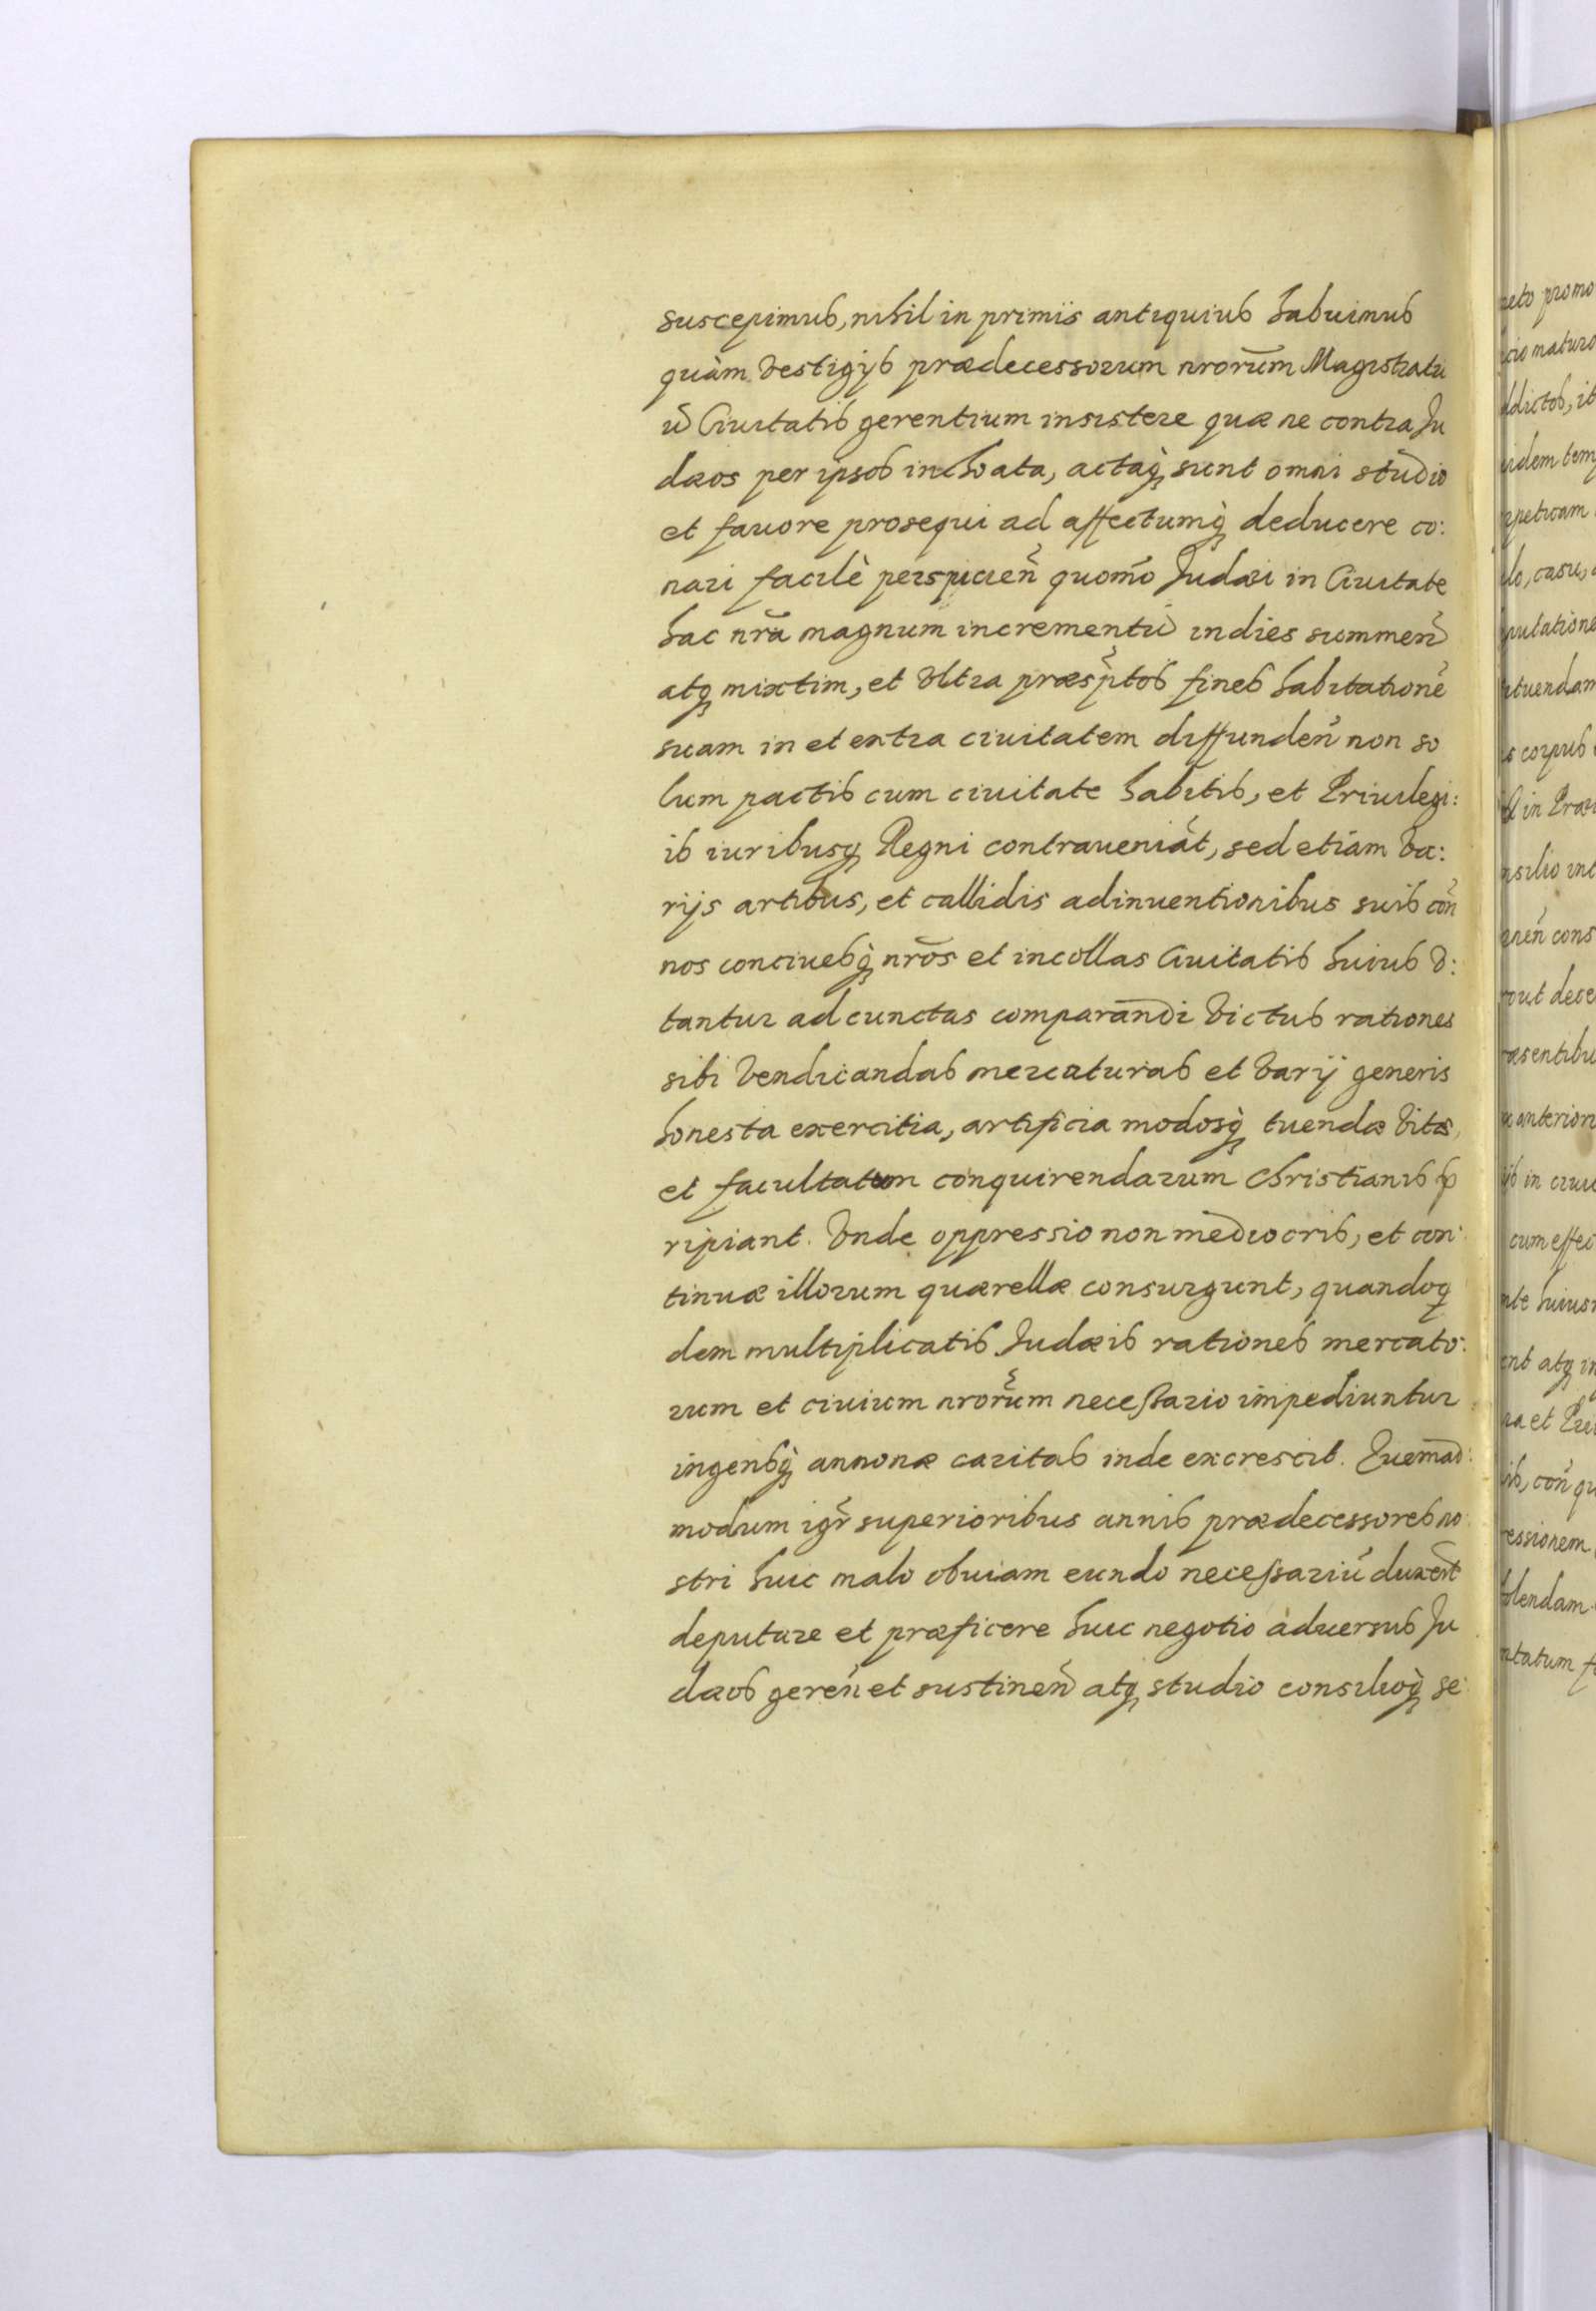 suscepimus, nihil in primiis antiquius habuimus
quàm vestigÿs prædecessorum nrorũm Magistratu
ũ Ciuitatis gerentium insistere quæ ne contra Ju
dæos per ipsos inchoata, actaq̀ꝫ sunt omni studio
et fauore prosequi ad affectumq̀ꝫ deducere co:
nari facilè perspicien̉ quom̃o Judæi in Ciuitate
hac nr̃a magnum incrementũ indies summen̉
atqꝫ mixtim, et vltra præsp̉tos fines habitationẽ
suam in et extra ciuitatem diffunden̉ non so
lum pactis cum ciuitate habitis, et Priuilegi:
is iuribusqꝫ Regni contraueniãt, sed etiam va:
rijs artibus, et callidis adinuentionibus suis con̉
nos conciuesq̀ꝫ nrõs et incollas Ciuitatis huius v:
tantur ad cunctas comparandi victus rationes
sibi vendicandas mercaturas et varij generis
honesta exercitia, artificia modosq̀ꝫ tuendæ vitæ,
et facultatum conquirendarum christianis p̱
ripiant. Vnde oppressio non mediocris, et con:
tinuæ illorum quærellæ consurgunt, quandoq
dem multiplicatis Judæis rationes mercato:
rum et ciuium nrorũm necessario impediuntur
ingensq̀ꝫ annonæ caritas inde excrescit. Quemad:
modum igr̃ superioribus annis prædecessores no
stri huic malo obuiam eundo necessariũ duxert̃
deputare et præficere huic negotio aduersus Ju
dæos geren̉ et sustinen̉ atqꝫ studio consilioq̀ꝫ se